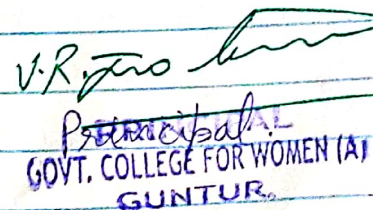 V.R.
Principal.
PRINCIPAL
GOVT. COLLEGE FOR WOMEN (A)
GUNTUR.